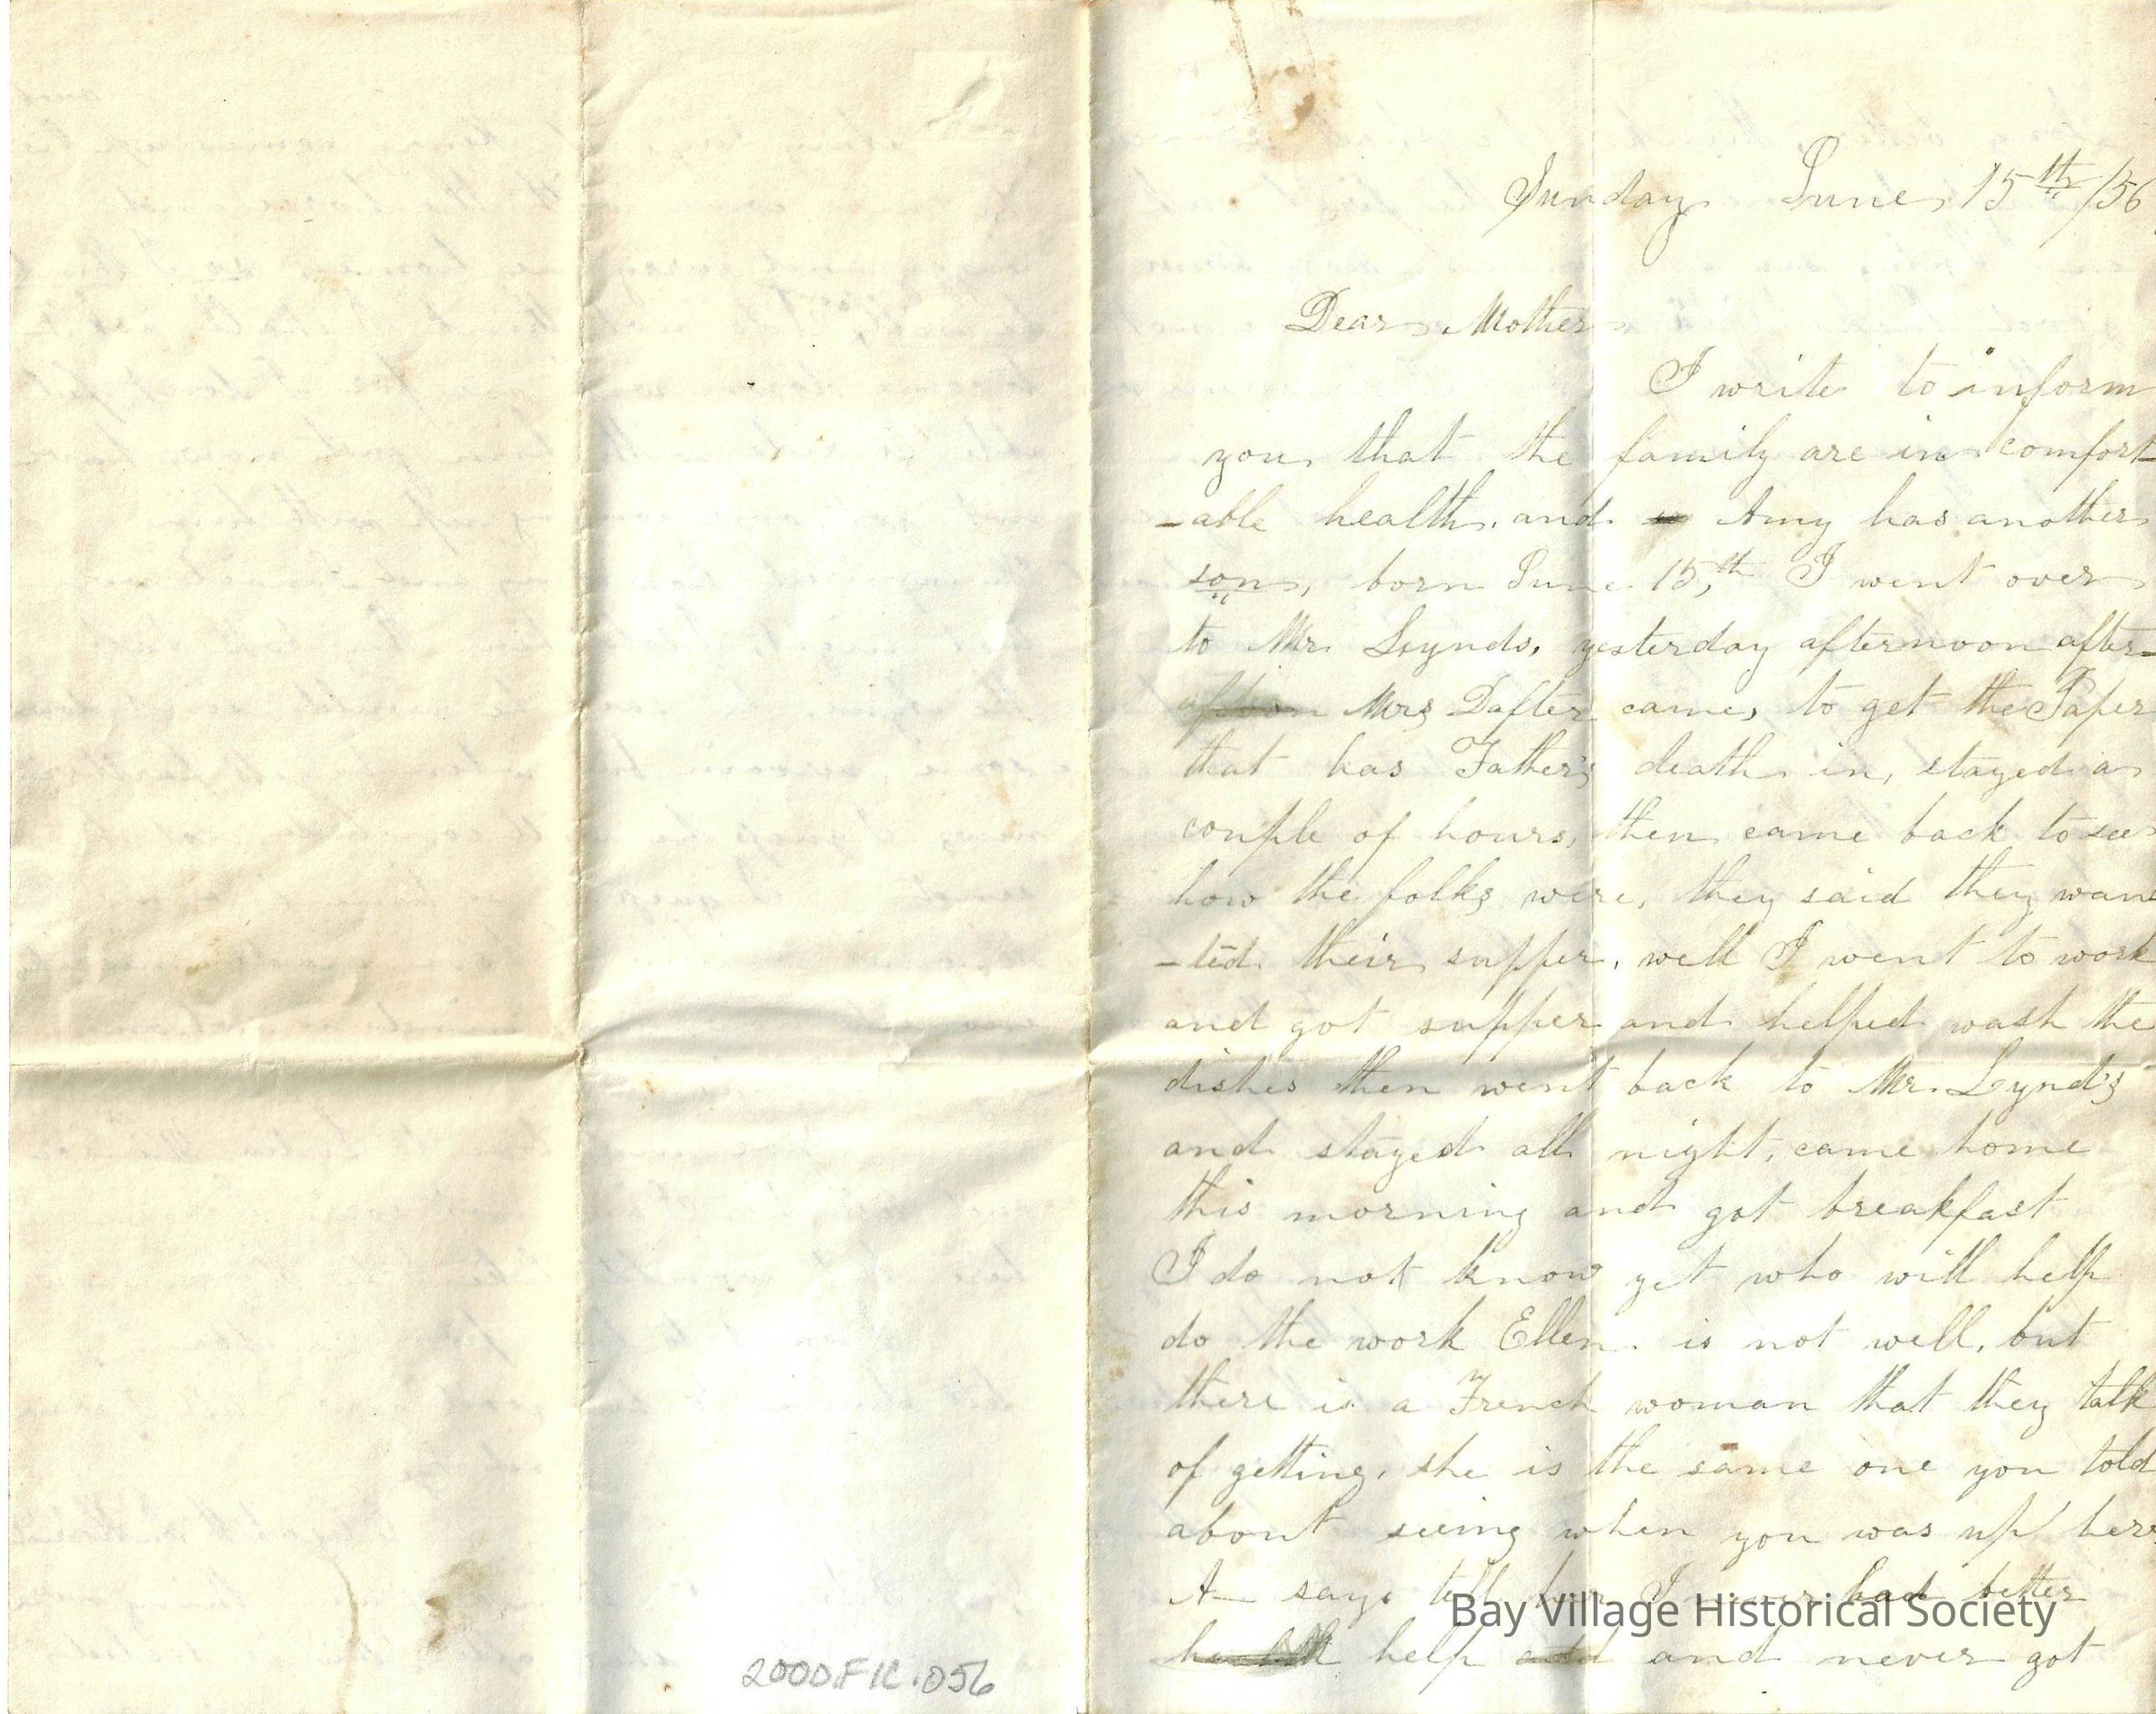 Sunday June 15th/56
Dear Mother
I write to inform
you that the family are in comfort
-able health, and Amy has another
son, born June 15,th I went over
to Mr. Lynds, yesterday afternoon after
Mrs Dafter came, to get the Paper
that has Father's death in, stayed a
couple of hours, then came back to see
how the folks were, they said they wan
-ted their supper, well I went to work
and got supper and helped wash the
dishes then went back to Mr. Lynd's
and stayed all night, came home
this morning and got breakfast
I do not know yet who will help
do the work Ellen is not well, but
there is a French woman that they talk
of getting, she is the same one you told
about seeing when you was up here
A— says tell her I never had better
health help and and never got
Bay Village Historical Society
2000.FIC.056